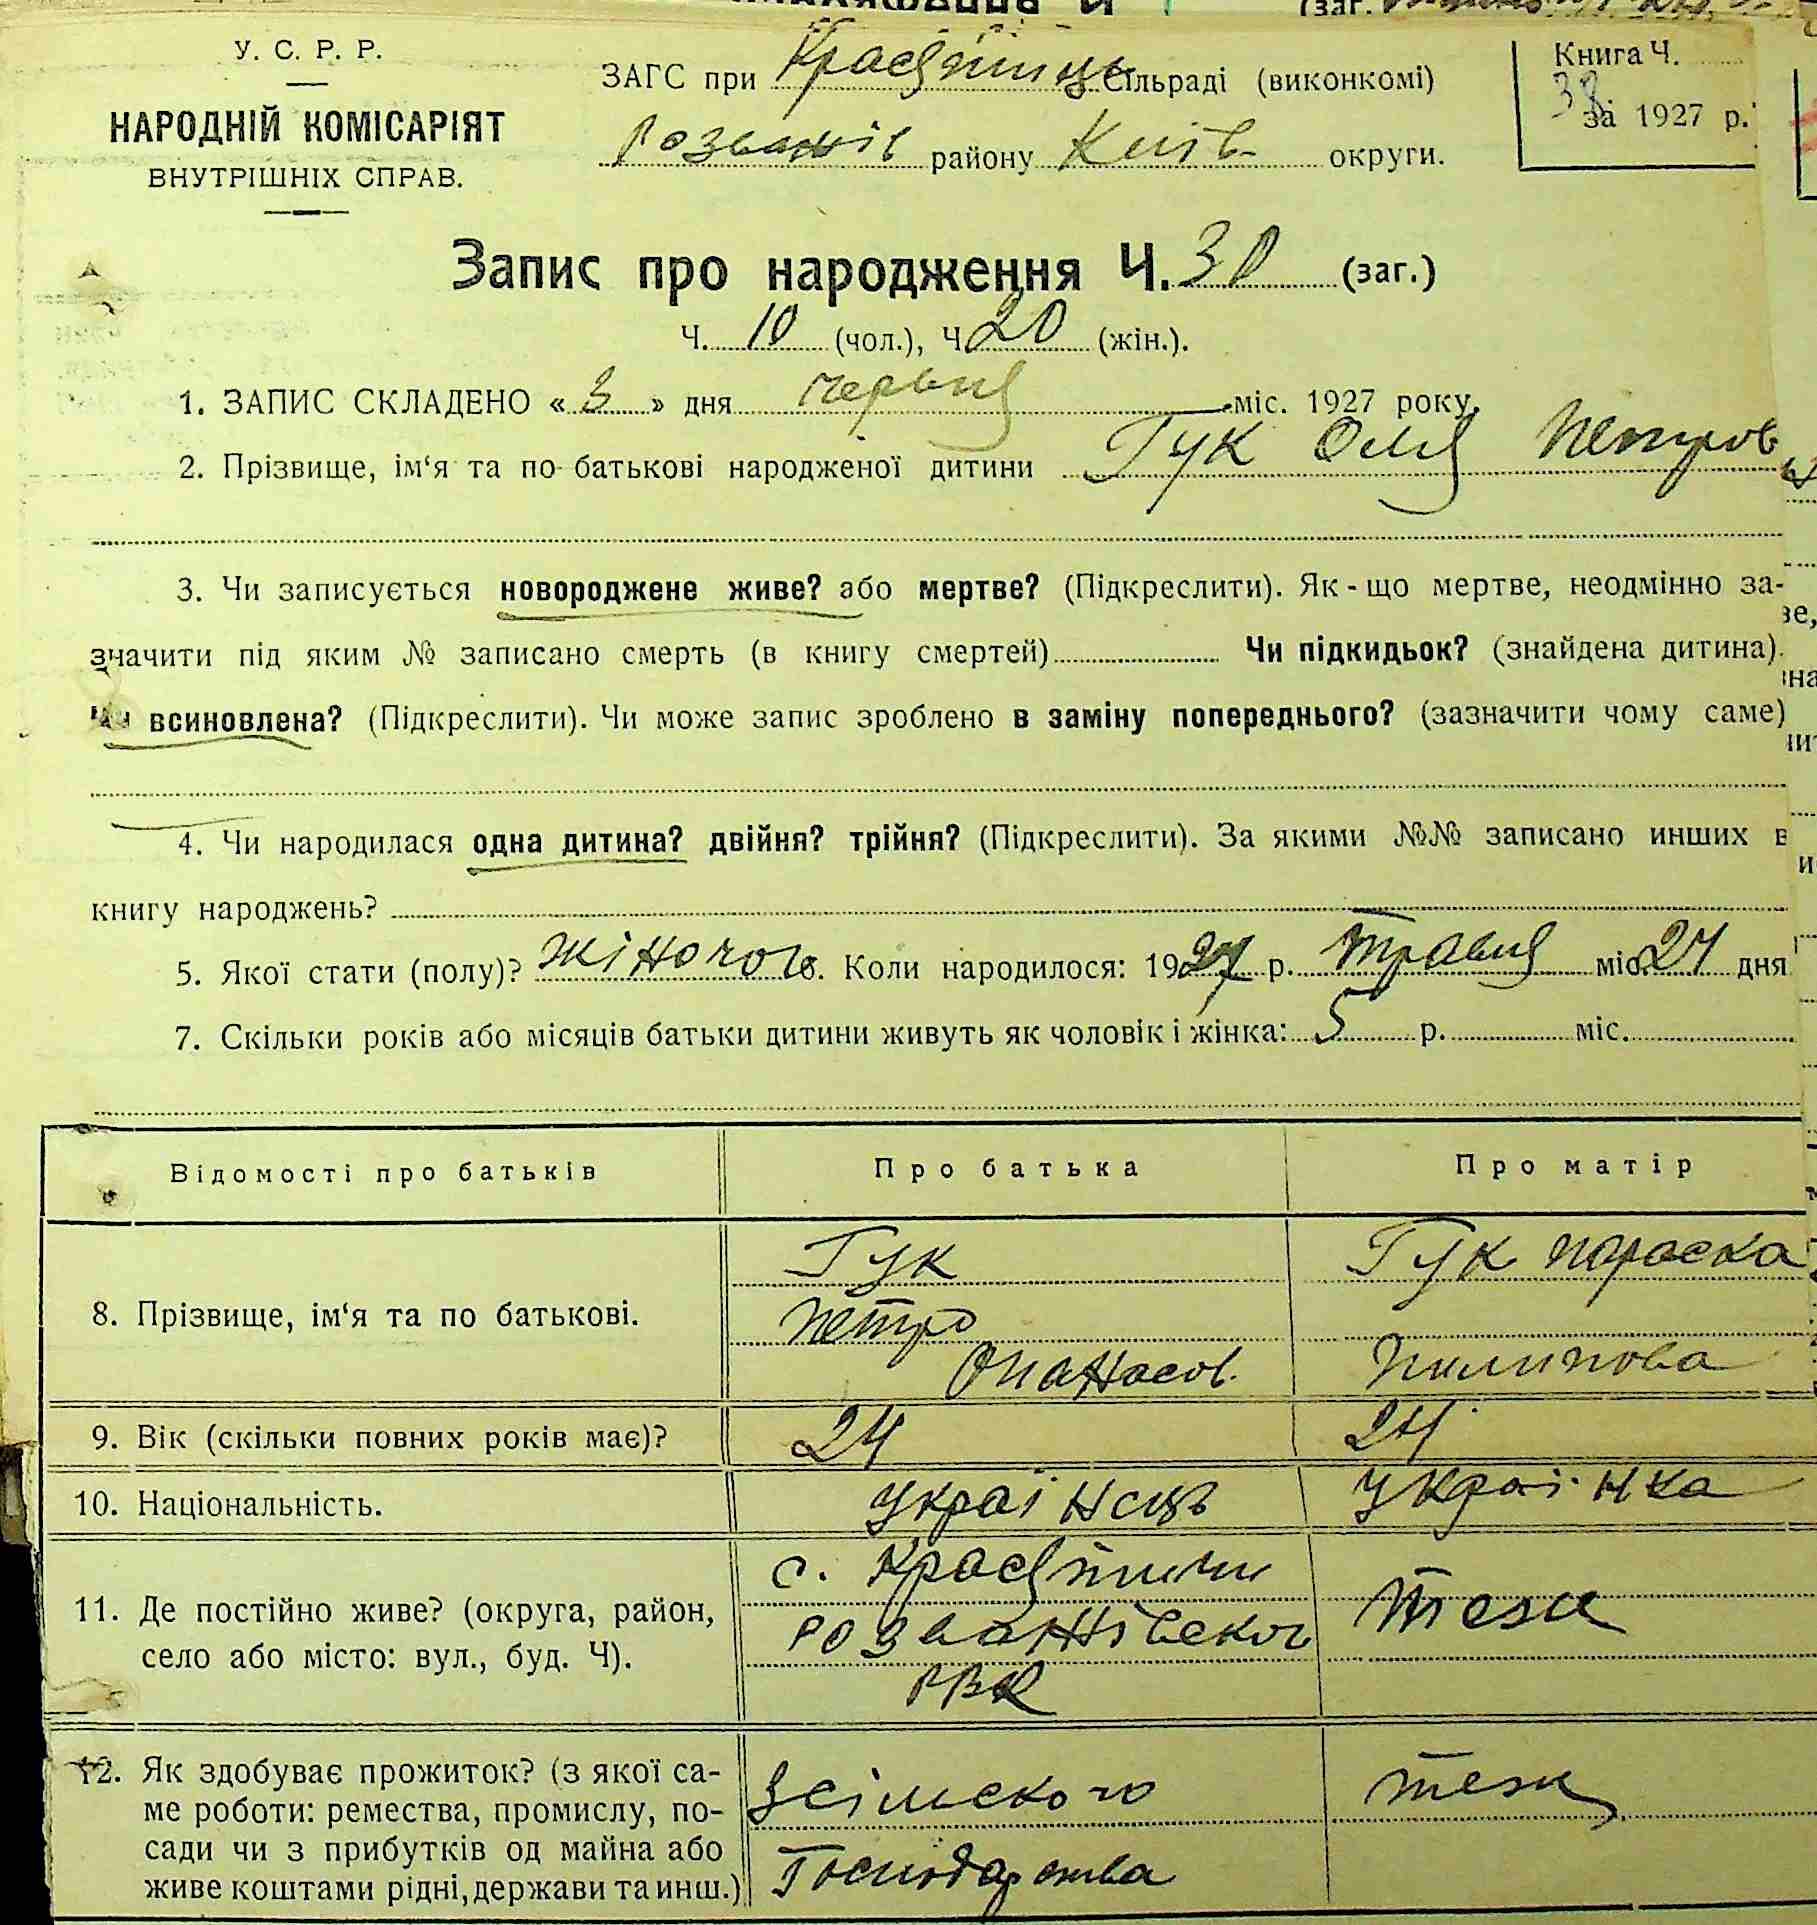 У. С. Р. Р.
НАРОДНІЙ КОМІСАРІЯТ
ВНУТРІШНІХ СПРАВ.
ЗАГС при Красятиць Сільраді (виконкомі)
Розважів району Київ округи.
Книга Ч.
38
за 1927 р.
Запис про народження Ч. 30 (заг.)
Ч. 10 (чол.), Ч 20 (жін.).
1. ЗАПИС СКЛАДЕНО « 3 » дня червня міс. 1927 року.
2. Прізвище, ім‘я та по батькові народженої дитини Гук Оля Петров
3. Чи записується новороджене живе? або мертве? (Підкреслити). Як-що мертве, неодмінно за-
значити під яким № записано смерть (в книгу смертей) Чи підкидьок? (знайдена дитина).
Чи всиновлена? (Підкреслити). Чи може запис зроблено в заміну попереднього? (зазначити чому саме)
4. Чи народилася одна дитина? двійня? трійня? (Підкреслити). За якими №№ записано инших в
книгу народжень?
5. Якої стати (полу)? жіночого. Коли народилося: 1927 р. травня міс. 24 дня
7. Скільки років або місяців батьки дитини живуть як чоловік і жінка: 5 р. міс.
Відомості про батьків Про батька Про матір
8. Прізвище, ім‘я та по батькові. Гук Петро Опанасов. Гук Параска Пилипова
9. Вік (скільки повних років має)? 24 24
10. Національність. Українець Українка
11. Де постійно живе? (округа, район,
село або місто: вул., буд. Ч).
с. Красятичи
Розважівського
РВК
теж
12. Як здобуває прожиток? (з якої са-
ме роботи: ремества, промислу, по-
сади чи з прибутків од майна або
живе коштами рідні, держави та инш.)
Зсільского
Господарства
теж